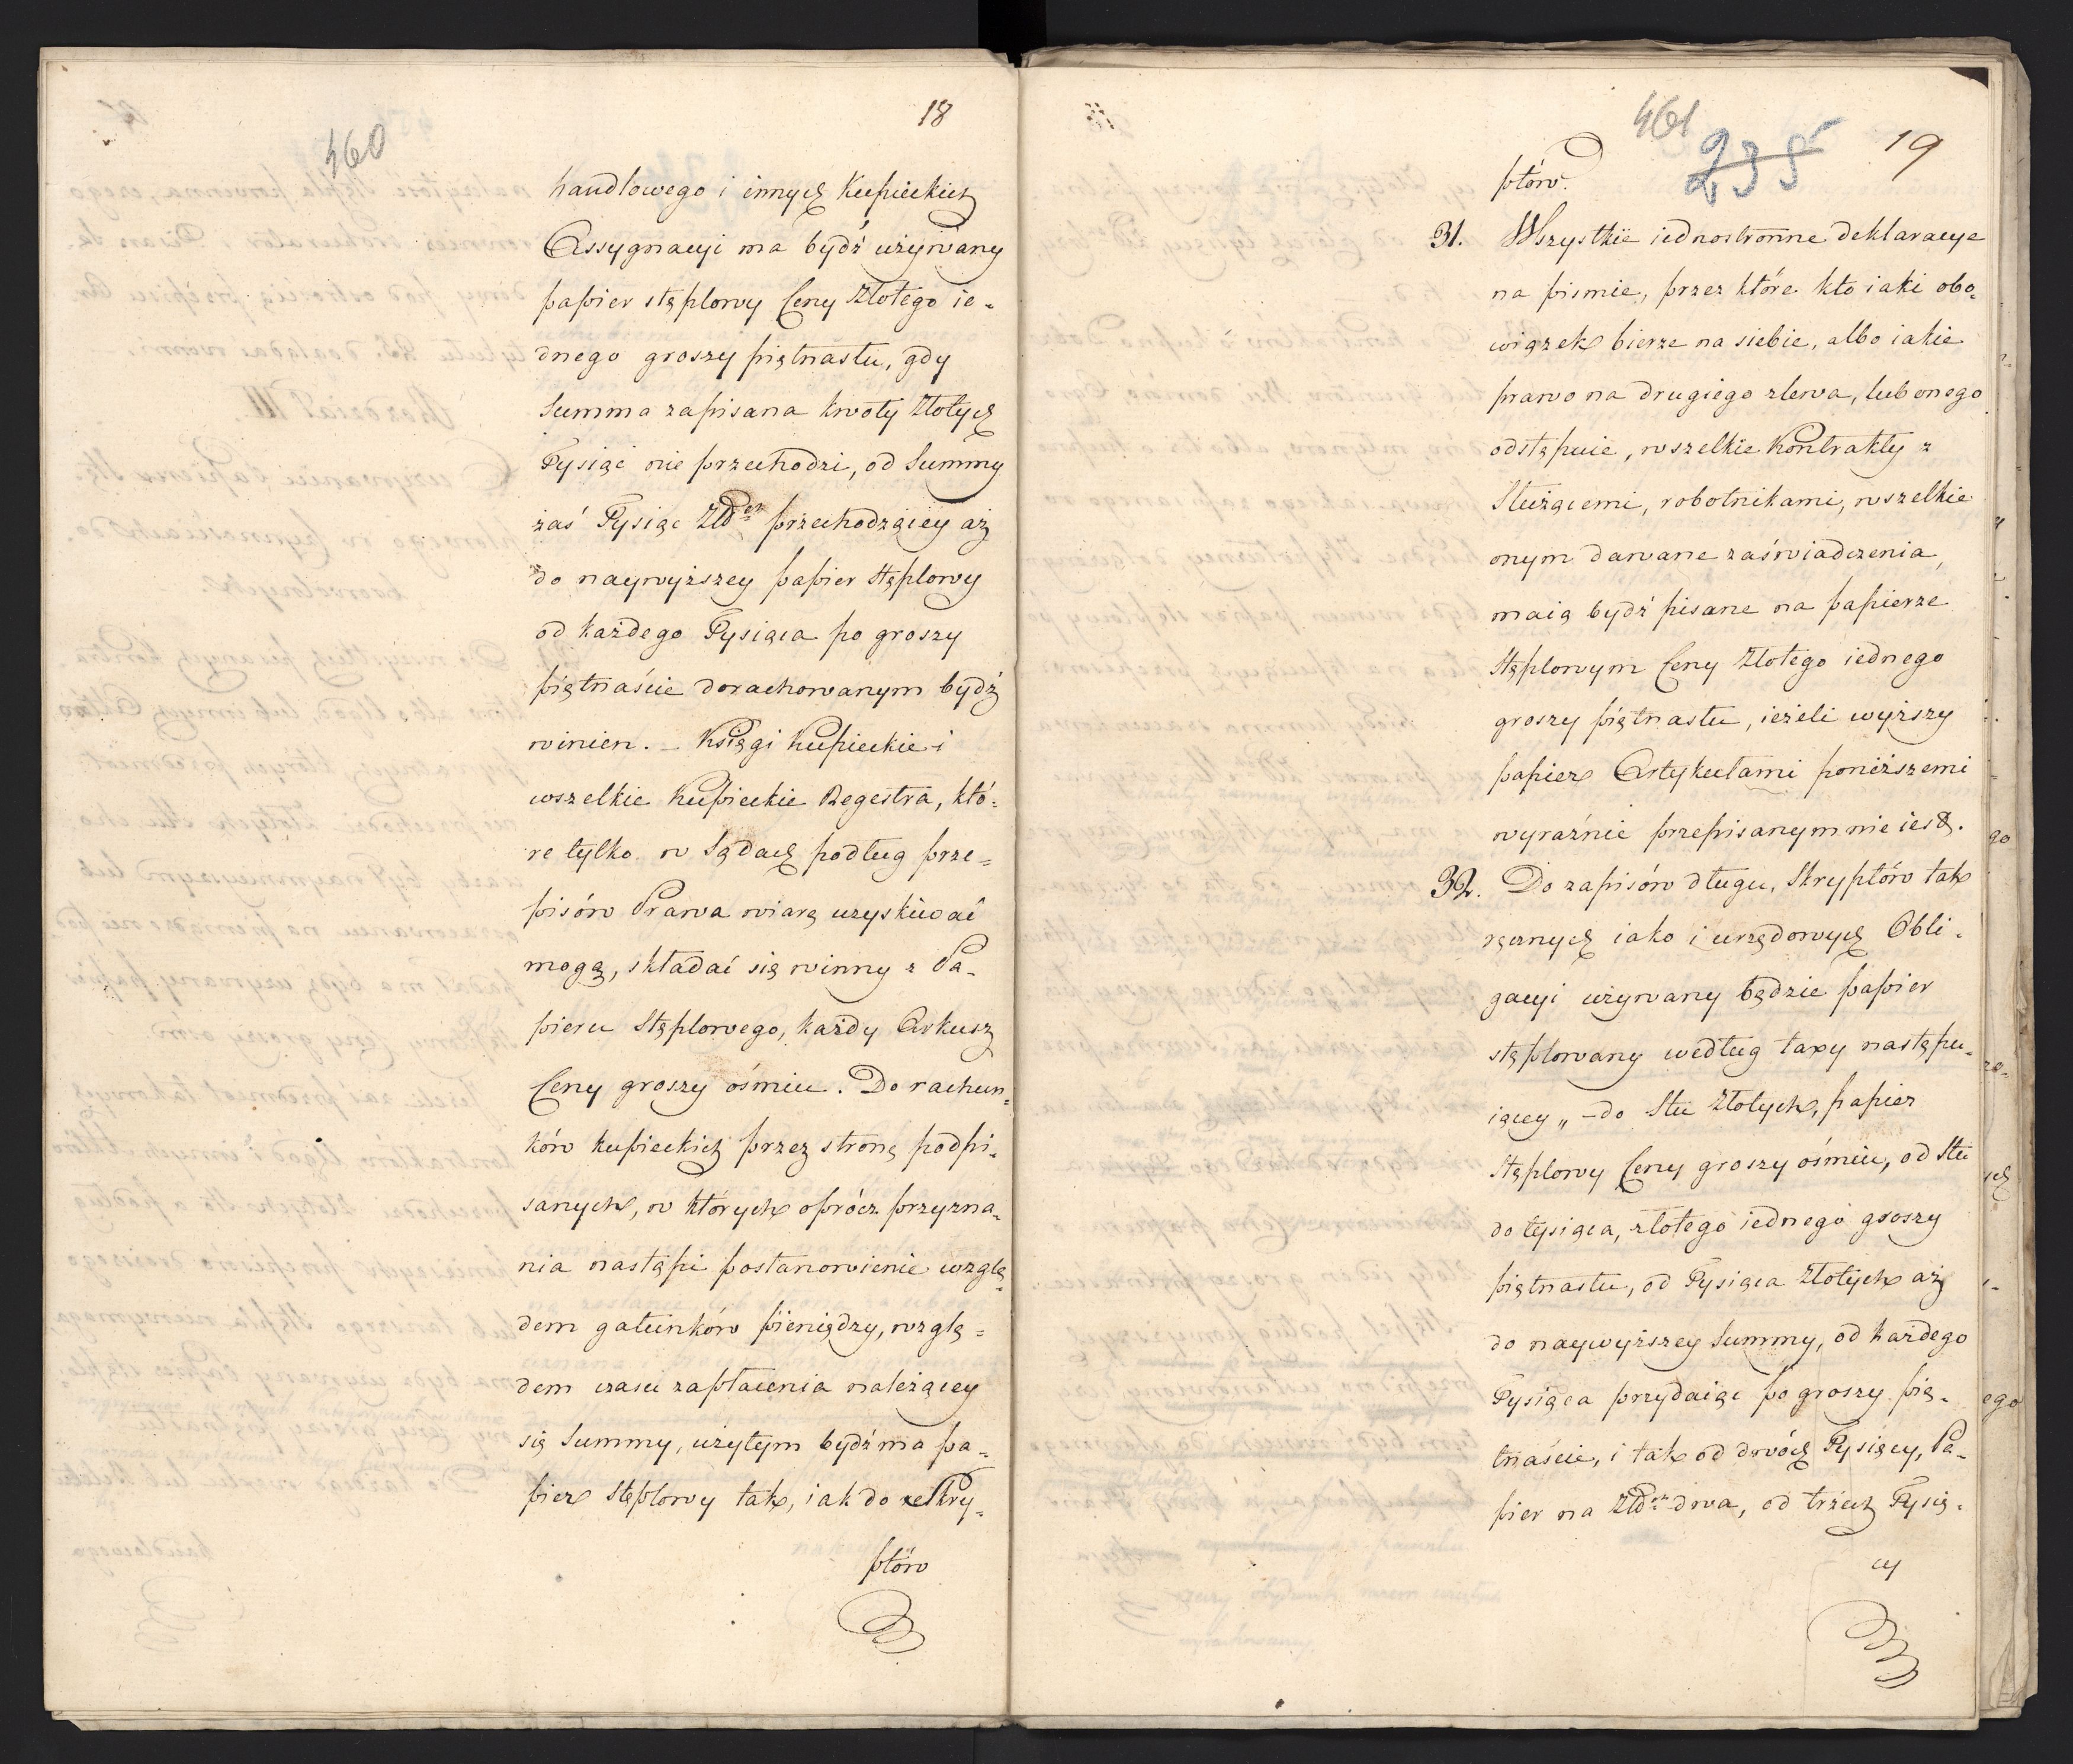 460
18
handlowego i innych Kupieckich
Assygnacyi ma bydź używany
papier stęplowy Ceny Złotego ie-
dnego groszy piętnastu, gdy
Summa zapisana kwoty Złotych
Tysiąc nie przechodzi, od Summy
zaś Tysiąc Złłch przechodzącey aż
do naywyższey papier Stęplowy
od każdego Tysiąca po groszy
piętnaście dorachowanym bydź
winien. – Księgi Kupieckie i
wszelkie Kupieckie Regestra, któ-
re tylko w Sądach podług prze-
pisów Prawa wiarę uzyskiwać
mogą, składać się winny z Pa-
pieru Stęplowego, każdy Arkusz
Ceny groszy ośmiu. Do rachun-
ków kupieckich przez stronę podpi-
sanych, w których oprócz przyzna-
nia nastąpi postanowienie wzglę-
dem gatunków pieniędzy, wzglę-
dem czasu zapłacenia należącey
się Summy, użytym bydź ma pa-
pier Stęplowy tak, iak do Skry-
ptów
461
235
19
ptów.
31. Wszystkie iednostronne deklaracye
na pismie, przez które kto iaki obo-
wiązek bierze na siebie, albo iakie
prawo na drugiego zlewa, lub onego
odstępuie, wszelkie Kontrakty z
Służącemi, robotnikami, wszelkie
onym dawane zaświadczenia,
maią bydź pisane na papierze
Stęplowym Ceny Złotego iednego
groszy piętnastu, ieżeli wyższy
papier Artykułami poniższemi
wyraźnie przepisanym nie iest.
32. Do zapisów długu, Skryptów tak
ręcznych iako i urzędowych Obli-
gacyi używany będzie papier
stęplowany według taxy następu-
iącey „ – do Stu Złotych, papier
Stęplowy Ceny groszy ośmiu, od Stu
do tysiąca, złotego iednego groszy
piętnastu, od Tysiąca Złotych aż
do naywyższey Summy, od każdego
Tysiąca przydaiąc po groszy pię-
tnaście, i tak od dwóch Tysięcy, Pa-
pier na Złłch dwa, od trzech Tysię-
cy